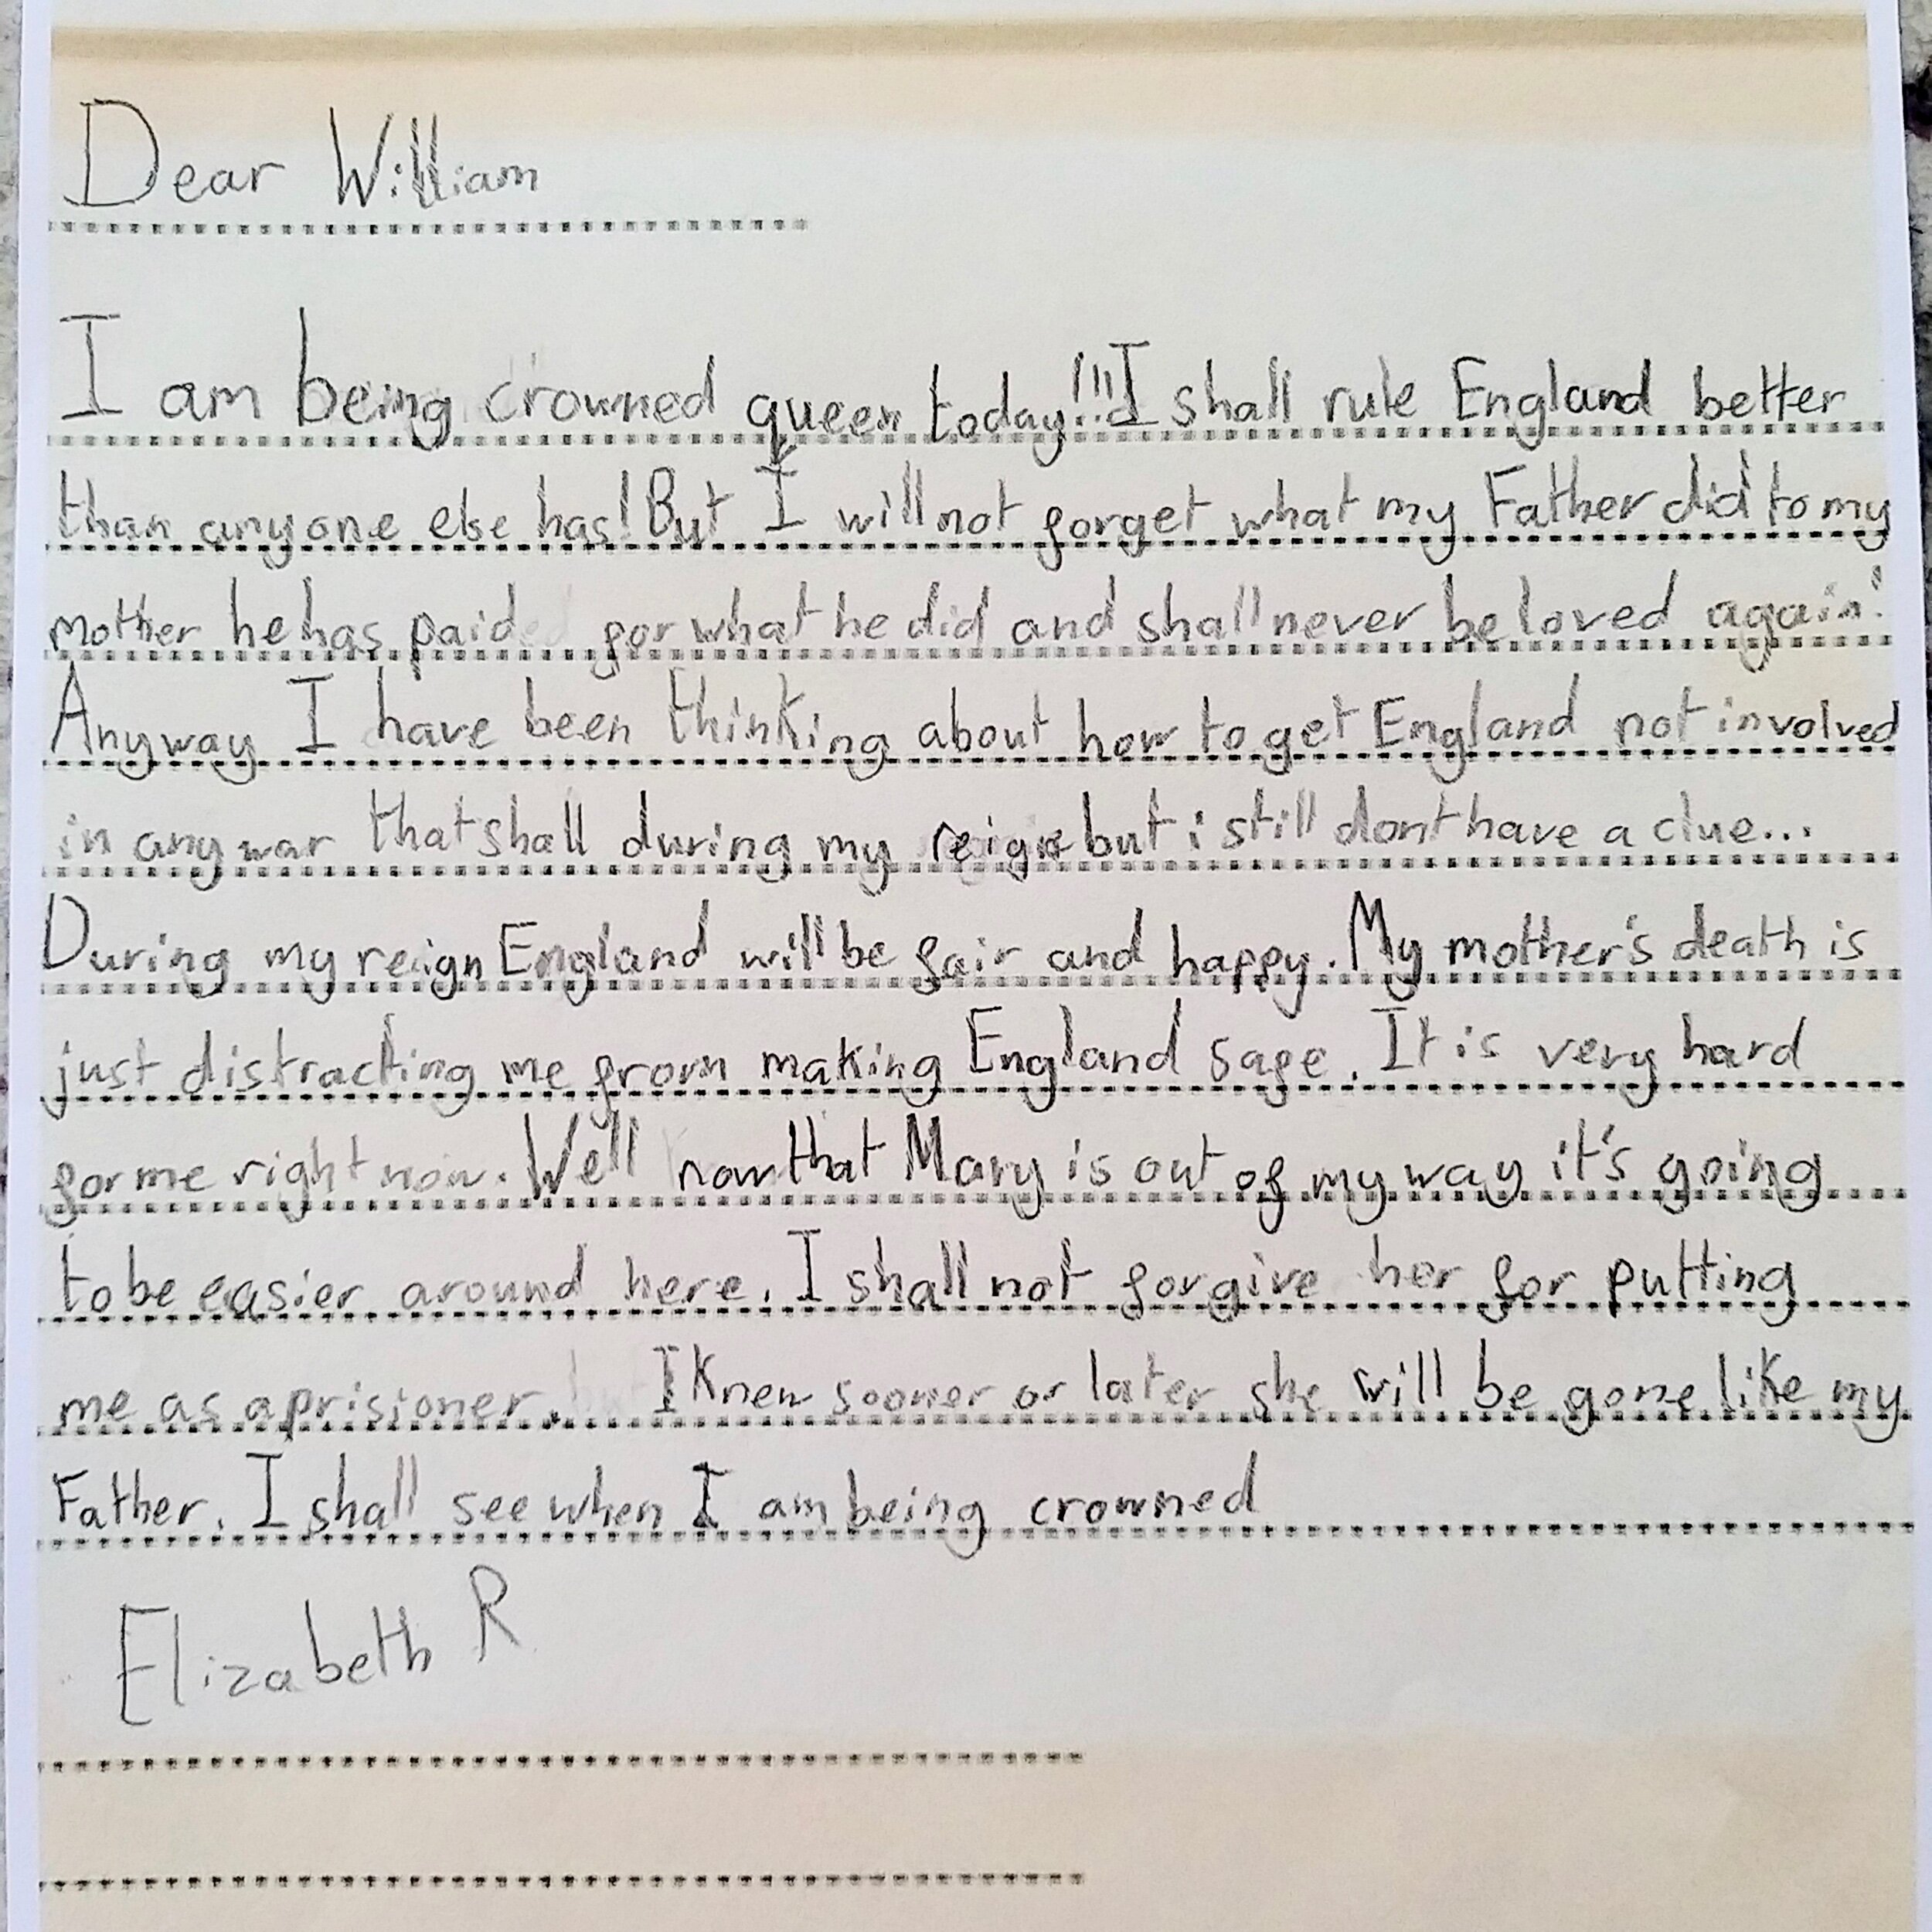 Dear William
I am being crowned queen today!!! I shall rule England better
than anyone else has! But I will not forget what my Father did to my
mother he has paid for what he did and shall never be loved again!
Anyway I have been thinking about how to get England not involved
in any war that shall during my reign but i still dont have a clue...
During my reign England will be fair and happy. My mother's death is
just distracting me from making England safe. It is very hard
for me right now. Well now that Mary is out of my way it's going
to be easier around here. I shall not forgive her for putting
me as a prisioner. I knew sooner or later she will be gone like my
Father. I shall see when I am being crowned
Elizabeth R